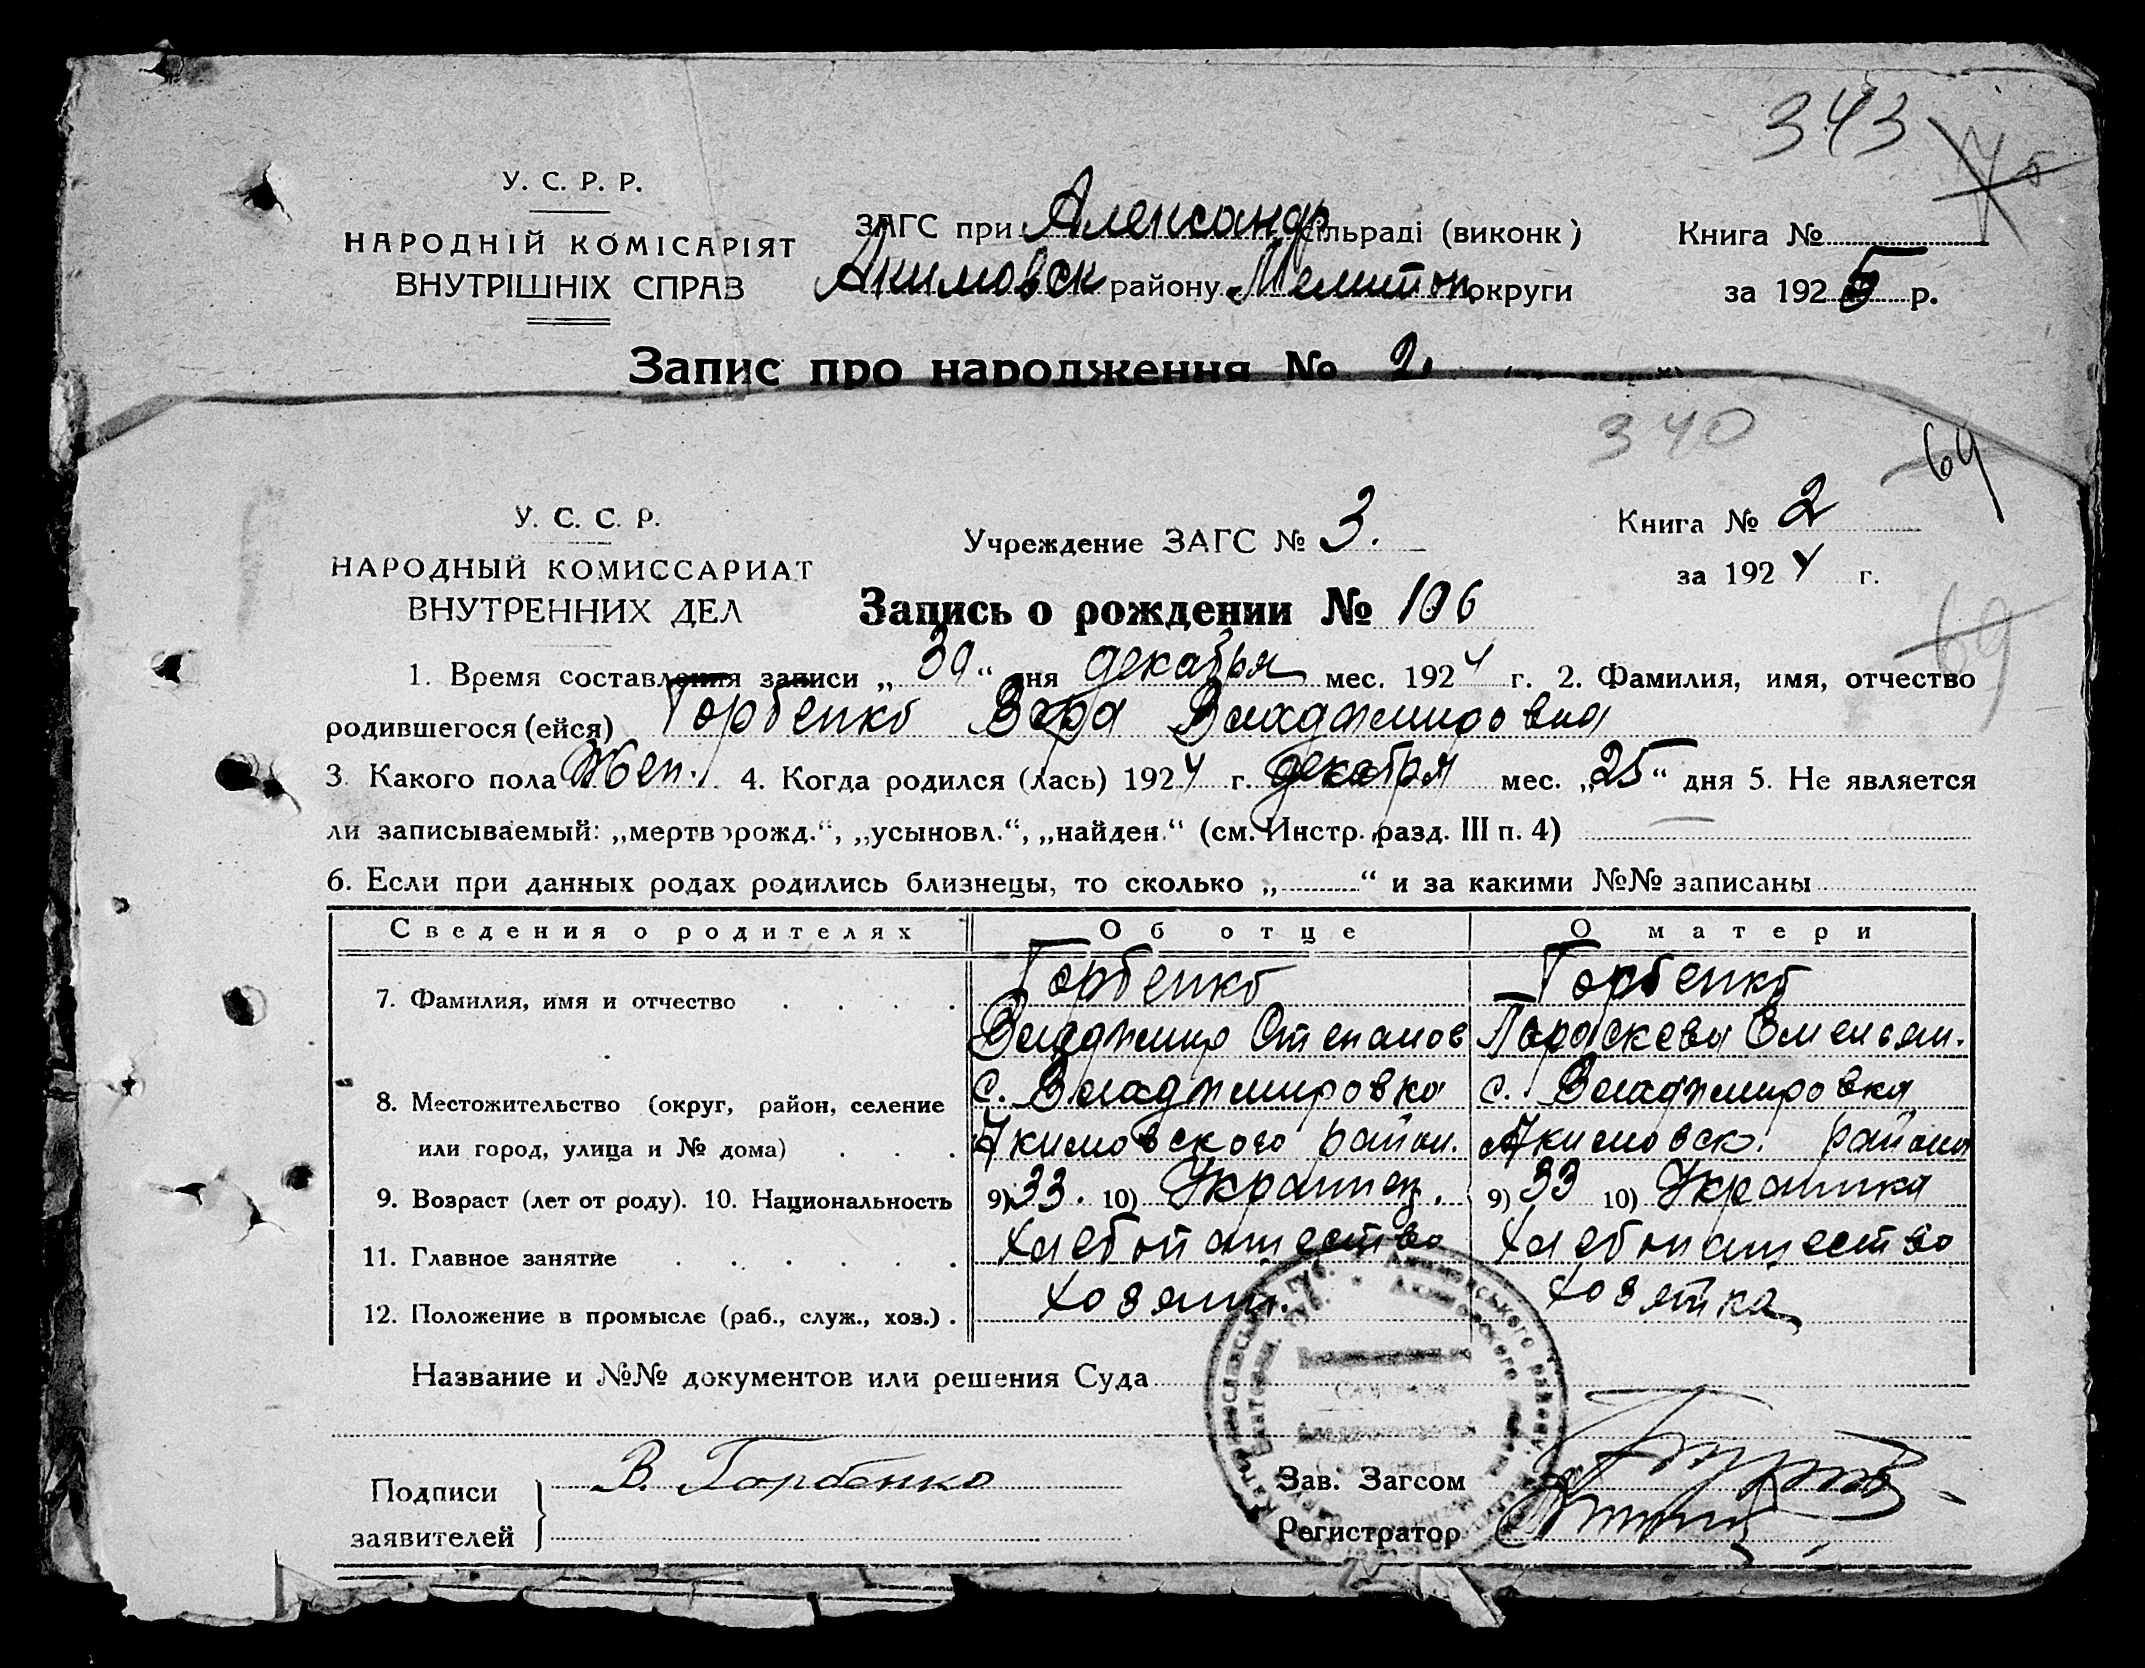 343
У. С. Р. Р.
НАРОДНІЙ КОМІСАРІЯТ
ВНУТРІШНІХ СПРАВ
ЗАГС при Александр сільраді (виконк)
Акимовск району Мелитоп. округи
Книга №
за 1925 р.
Запис про народження № 2.
340
69
У. С. С. Р.
НАРОДНЫЙ КОМИССАРИАТ
ВНУТРЕННИХ ДЕЛ
Учреждение ЗАГС № 3.
Книга № 2
за 1924 г.
69
Запись о рождении № 106
1. Время составления записи „30“ дня декабря мес. 1924 г. 2. Фамилия, имя, отчество
родившегося (ейся) Горбенко Вера Владимировна
3. Какого пола Жен. 4. Когда родился (лась) 1924 г. декабря мес. „25“ дня 5. Не является
ли записываемый: „мертворожд.“, „усыновл.“, „найден.“ (см. Инстр. разд. III п. 4) —
6. Если при данных родах родились близнецы, то сколько „ “ и за какими №№ записаны
Сведения о родителях Об отце О матери
7. Фамилия, имя и отчество Горбенко Горбенко
Владимир Степанов Параскева Емельян.
8. Местожительство (округ, район, селение с. Владимировка с. Владимировка
или город, улица и № дома) Акимовского район. Акимовск. района
9. Возраст (лет от роду). 10. Национальность 9) 33. 10) Украинец. 9) 33 10) Украинка
11. Главное занятие Хлебопашество Хлебопашество
12. Положение в промысле (раб., служ., хоз.) Хозяин. Хозяйка
Название и №№ документов или решения Суда
Подписи заявителей В. Горбенко
Зав. Загсом
Регистратор